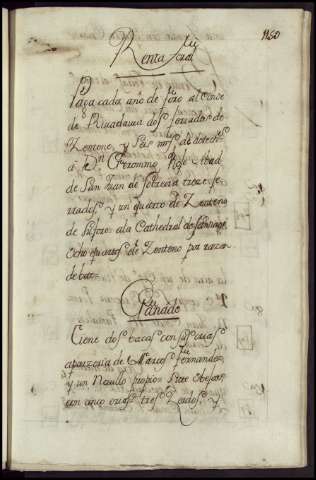 1450
Renta
Paga cada año de foro al Conde
de Rivadavia dos ferrados de
Zenteno, y seis mrs. de derechos
a Dn. Geronimo Abad
de San Juan de treze fe-
rrados, y un quarto de Zenteno
de foro a la Cathedral de Santiago
Ocho quartos de Zenteno por razon
de
Ganado
Tiene dos bacas con sus crias
aparzeria de Marcos Fernandez
y un Novillo propio Siete Obejas
con cinco crias tres Zerdos, y